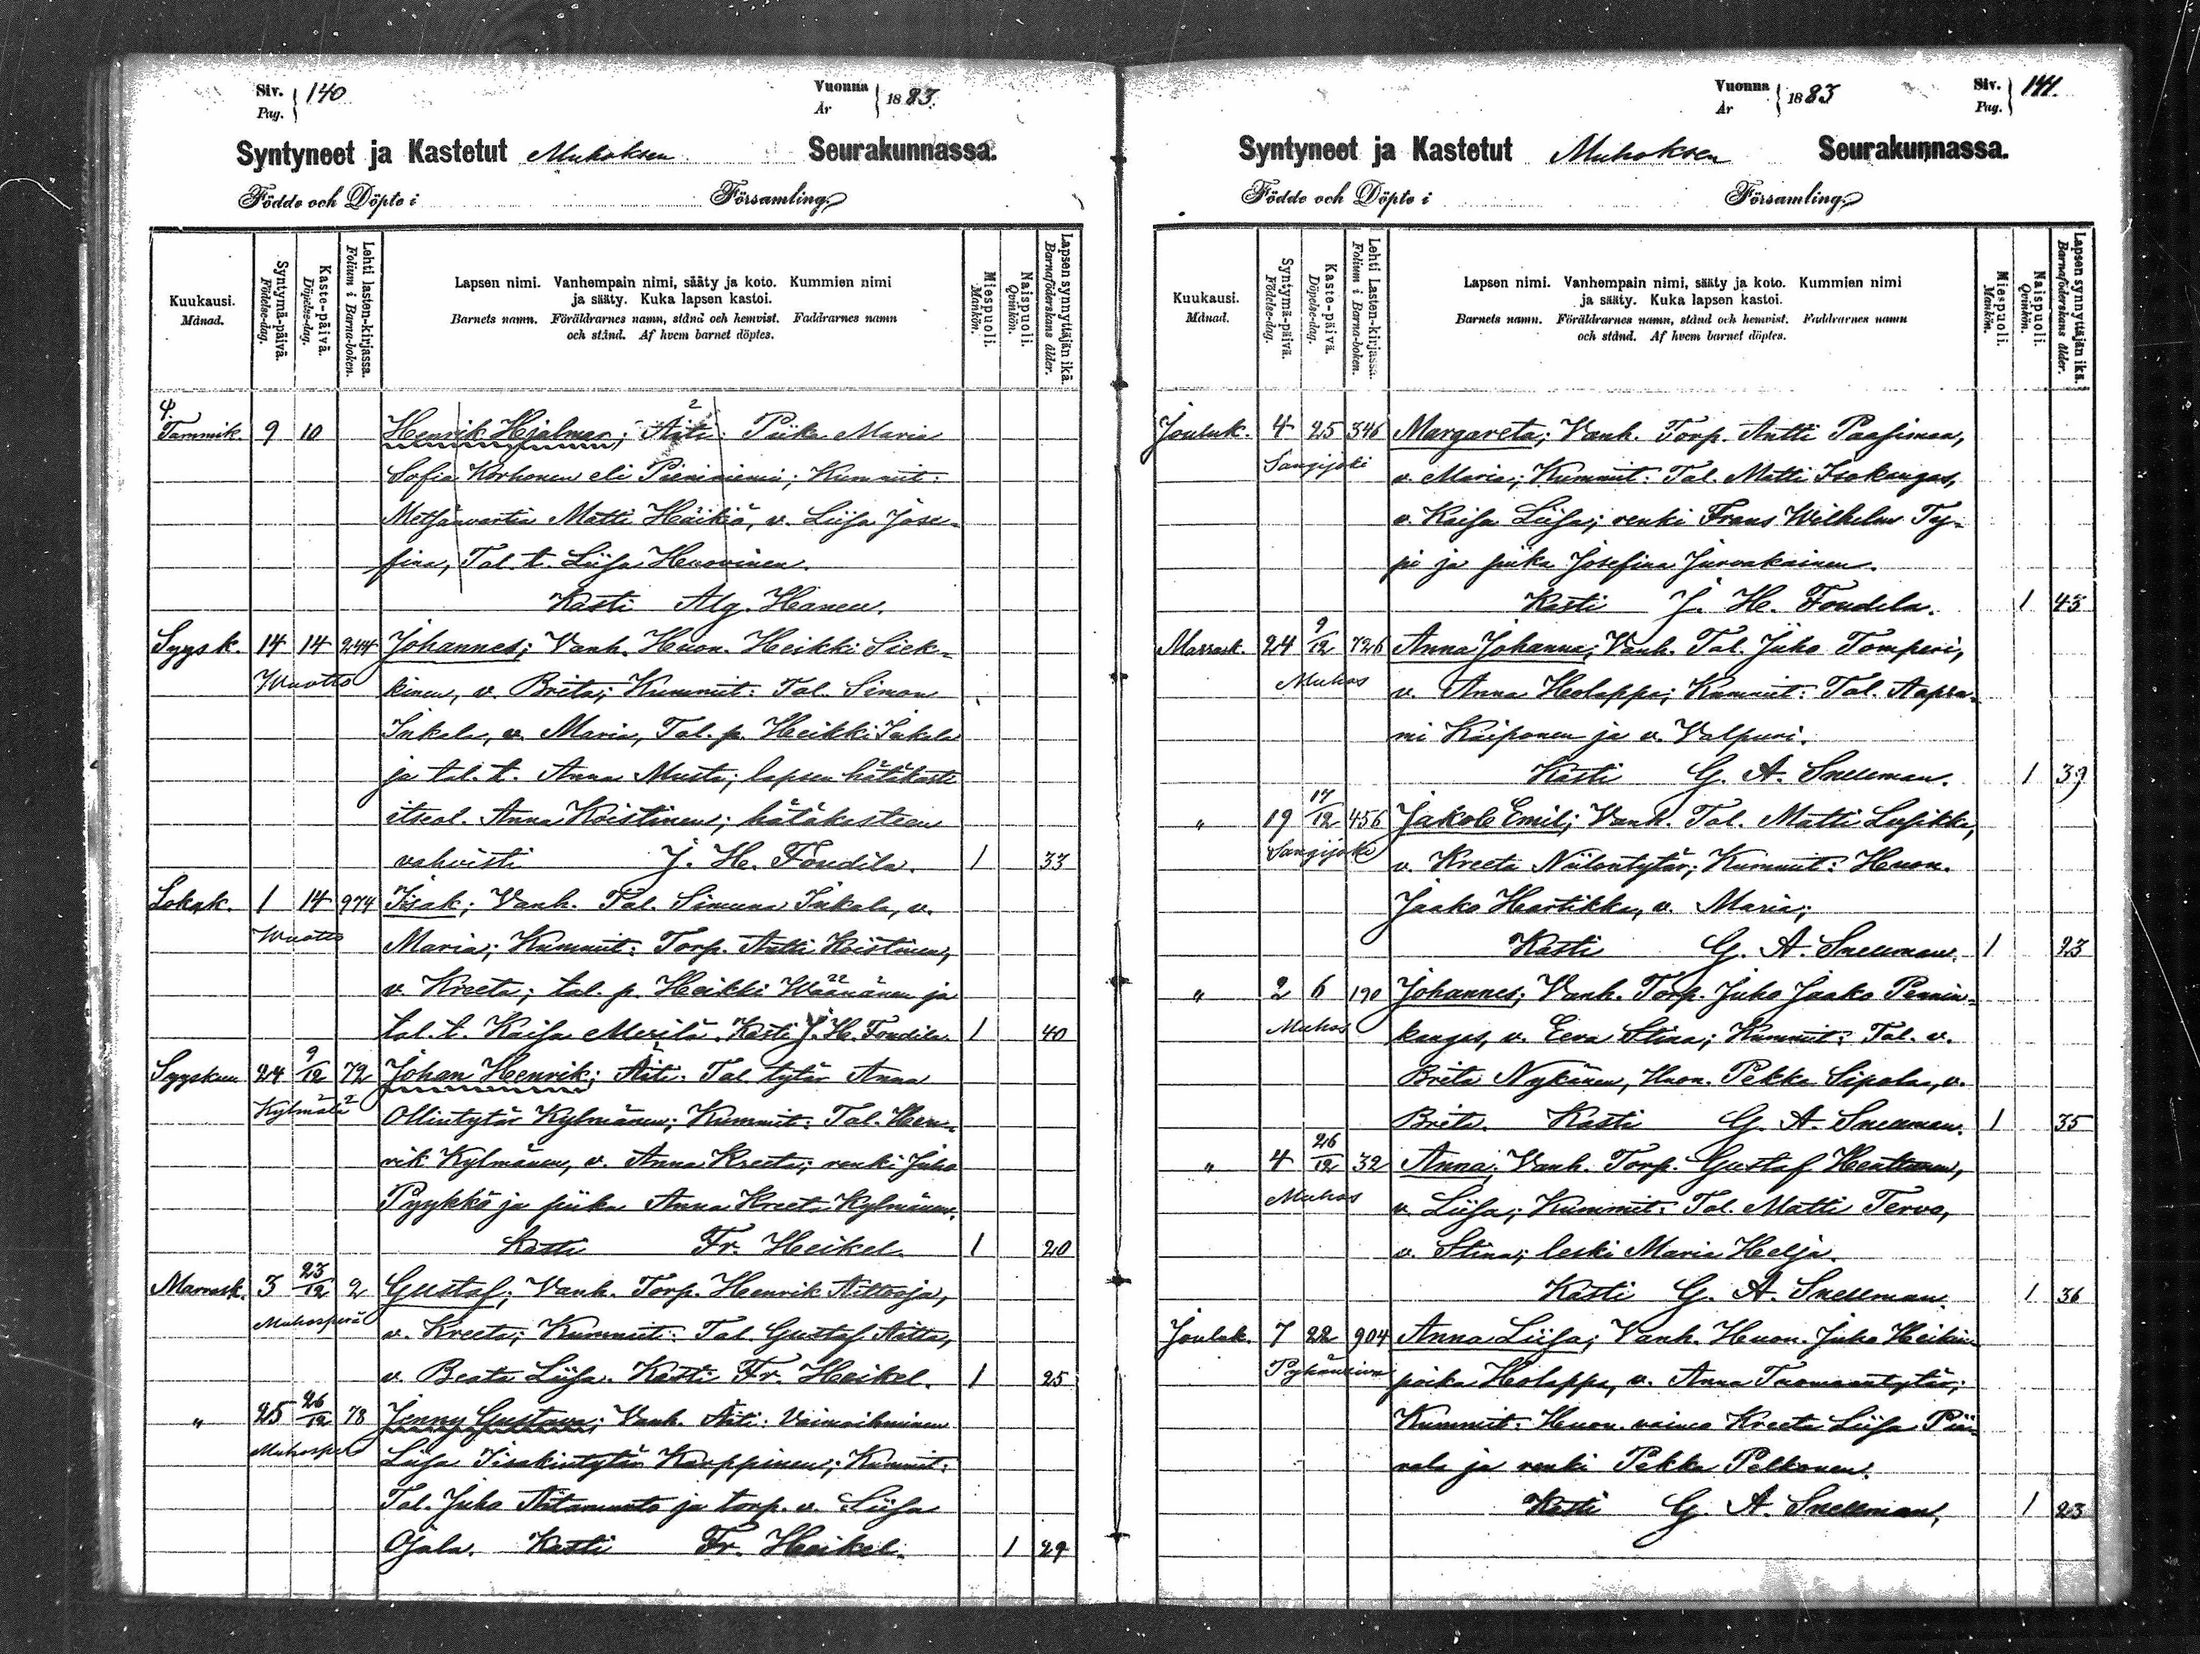 Siv. Pag. } 140
Vuonna År } 1883.
Syntyneet ja Kastetut Muhoksen Seurakunnassa.
Födde och Döpte i Församling.
Kuukausi. Månad.
Syntymä-päivä. Födelse-dag.
Kaste-päivä. Döpelse-dag.
Lehti lasten-kirjassa. Folium i Barna-boken.
Lapsen nimi. Vanhempain nimi, sääty ja koto. Kummien nimi
ja sääty. Kuka lapsen kastoi.
Barnets namn. Föräldrarnes namn, stånd och hemvist. Faddrarnes namn
och stånd. Af hvem barnet döptes.
Miespuoli. Mankön.
Naispuoli. Qvinkön.
Lapsen synnyttäjän ikä. Barnaföderskans ålder.
Tammik. 9 10 Henrik Hjalmar; Äiti: Piika Maria
Sofia Korhonen eli Pieniniemi; Kummit:
Metsänvartia Matti Häikiö, v. Liisa Jose-
fina, Tal. t. Liisa Huovinen.
Kasti Alg. Hanen.
Syysk. 14 14 244 Johannes; Vanh. Huon. Heikki Siek-
Wuotto kinen, v. Brita; Kummit: Tal. Simon
Inkala, v. Maria, Tal. p. Heikki Inkala
ja tal. t. Anna Musta; lapsen hätäkasti
itseal. Anna Koistinen; hätäkasteen
vahvisti J. H. Fondila. 1 33
Lokak. 1 14 974 Iisak; Vanh. Tal. Simuna Inkala, v.
Wuotto Maria; Kummit: Torp. Antti Koistinen,
v. Kreeta; tal. p. Heikki Väänänen ja
tal. t. Kaisa Merilä. Kasti J. H. Fondila. 1 40
Syyskuu 24 9/12 72 Johan Henrik; Äiti: Tal. tytär Anna
Kylmälä Ollintytär Kylmänen; Kummit: Tal. Hen-
rik Kylmänen, v. Anna Kreeta; renki Juho
Pyykkö ja piika Anna Kreeta Kylmänen.
Kasti Fr. Heikel. 1 20
Marrask. 3 23/12 2 Gustaf; Vanh. Torp. Henrik Aittooja,
Muhosperä v. Kreeta; Kummit: Tal. Gustaf Aitta,
v. Beata Liisa. Kasti Fr. Heikel. 1 25
" 25 26/12 78 Jenny Gustava; Vanh. Äiti: Vaimoihminen
Muhosperä Liisa Iisakintytär Karppinen; Kummit:
Tal. Juho Aitamurto ja torp. v. Liisa
Ojala. Kasti Fr. Heikel. 1 29
Vuonna År } 1883
Siv. Pag. } 141.
Syntyneet ja Kastetut Muhoksen Seurakunnassa.
Födde och Döpte i Församling.
Kuukausi. Månad.
Syntymä-päivä. Födelse-dag.
Kaste-päivä. Döpelse-dag.
Lehti Lasten-kirjassa. Folium i Barna-boken.
Lapsen nimi. Vanhempain nimi, sääty ja koto. Kummien nimi
ja sääty. Kuka lapsen kastoi.
Barnets namn. Föräldrarnes namn, stånd och hemvist. Faddrarnes namn
och stånd. Af hvem barnet döptes.
Miespuoli. Mankön.
Naispuoli. Qvinkön.
Lapsen synnyttäjän ikä. Barnaföderskans ålder.
Jouluk. 4 25 346 Margareta; Vanh. Torp. Antti Paasimaa,
Sangijoki v. Maria; Kummit: Tal. Matti Isokangas,
v. Kaisa Liisa; renki Frans Wilhelm Ty-
pi ja piika Josefina Jurvakainen.
Kasti J. H. Fondila. 1 43
Marrask. 24 9/12 726 Anna Johanna; Vanh. Tal. Juho Tomperi,
Muhos v. Anna Holappa; Kummit: Tal. Aapra-
mi Kaiponen ja v. Valpuri.
Kasti G. A. Snellman. 1 39
" 19 17/12 456 Jakob Emil; Vanh. Tal. Matti Lusikka,
Sangijoki v. Kreeta Niilontytär; Kummit: Huon.
Jaako Hartikka, v. Maria;
Kasti G. A. Snellman. 1 23
" 2 6 190 Johannes; Vanh. Torp. Juho Jaako Pernin-
Muhos kangas, v. Eeva Stina; Kummit: Tal. v.
Brita Nykänen, Huon. Pekka Sipola, v.
Brita. Kasti G. A. Snellman. 1 35
" 4 26/12 32 Anna; Vanh. Torp. Gustaf Henttunen,
Muhos v. Liisa; Kummit: Tal. Matti Tervo,
v. Stina; leski Maria Helja.
Kasti G. A. Snellman. 1 36
Jouluk. 7 22 904 Anna Liisa; Vanh. Huon. Juho Heikin-
poika Holappa, v. Anna Tuomaantytär;
Kummit: Huon. vaimo Kreeta Liisa Pää-
rala ja renki Pekka Pelkonen.
Kasti G. A. Snellman. 1 23